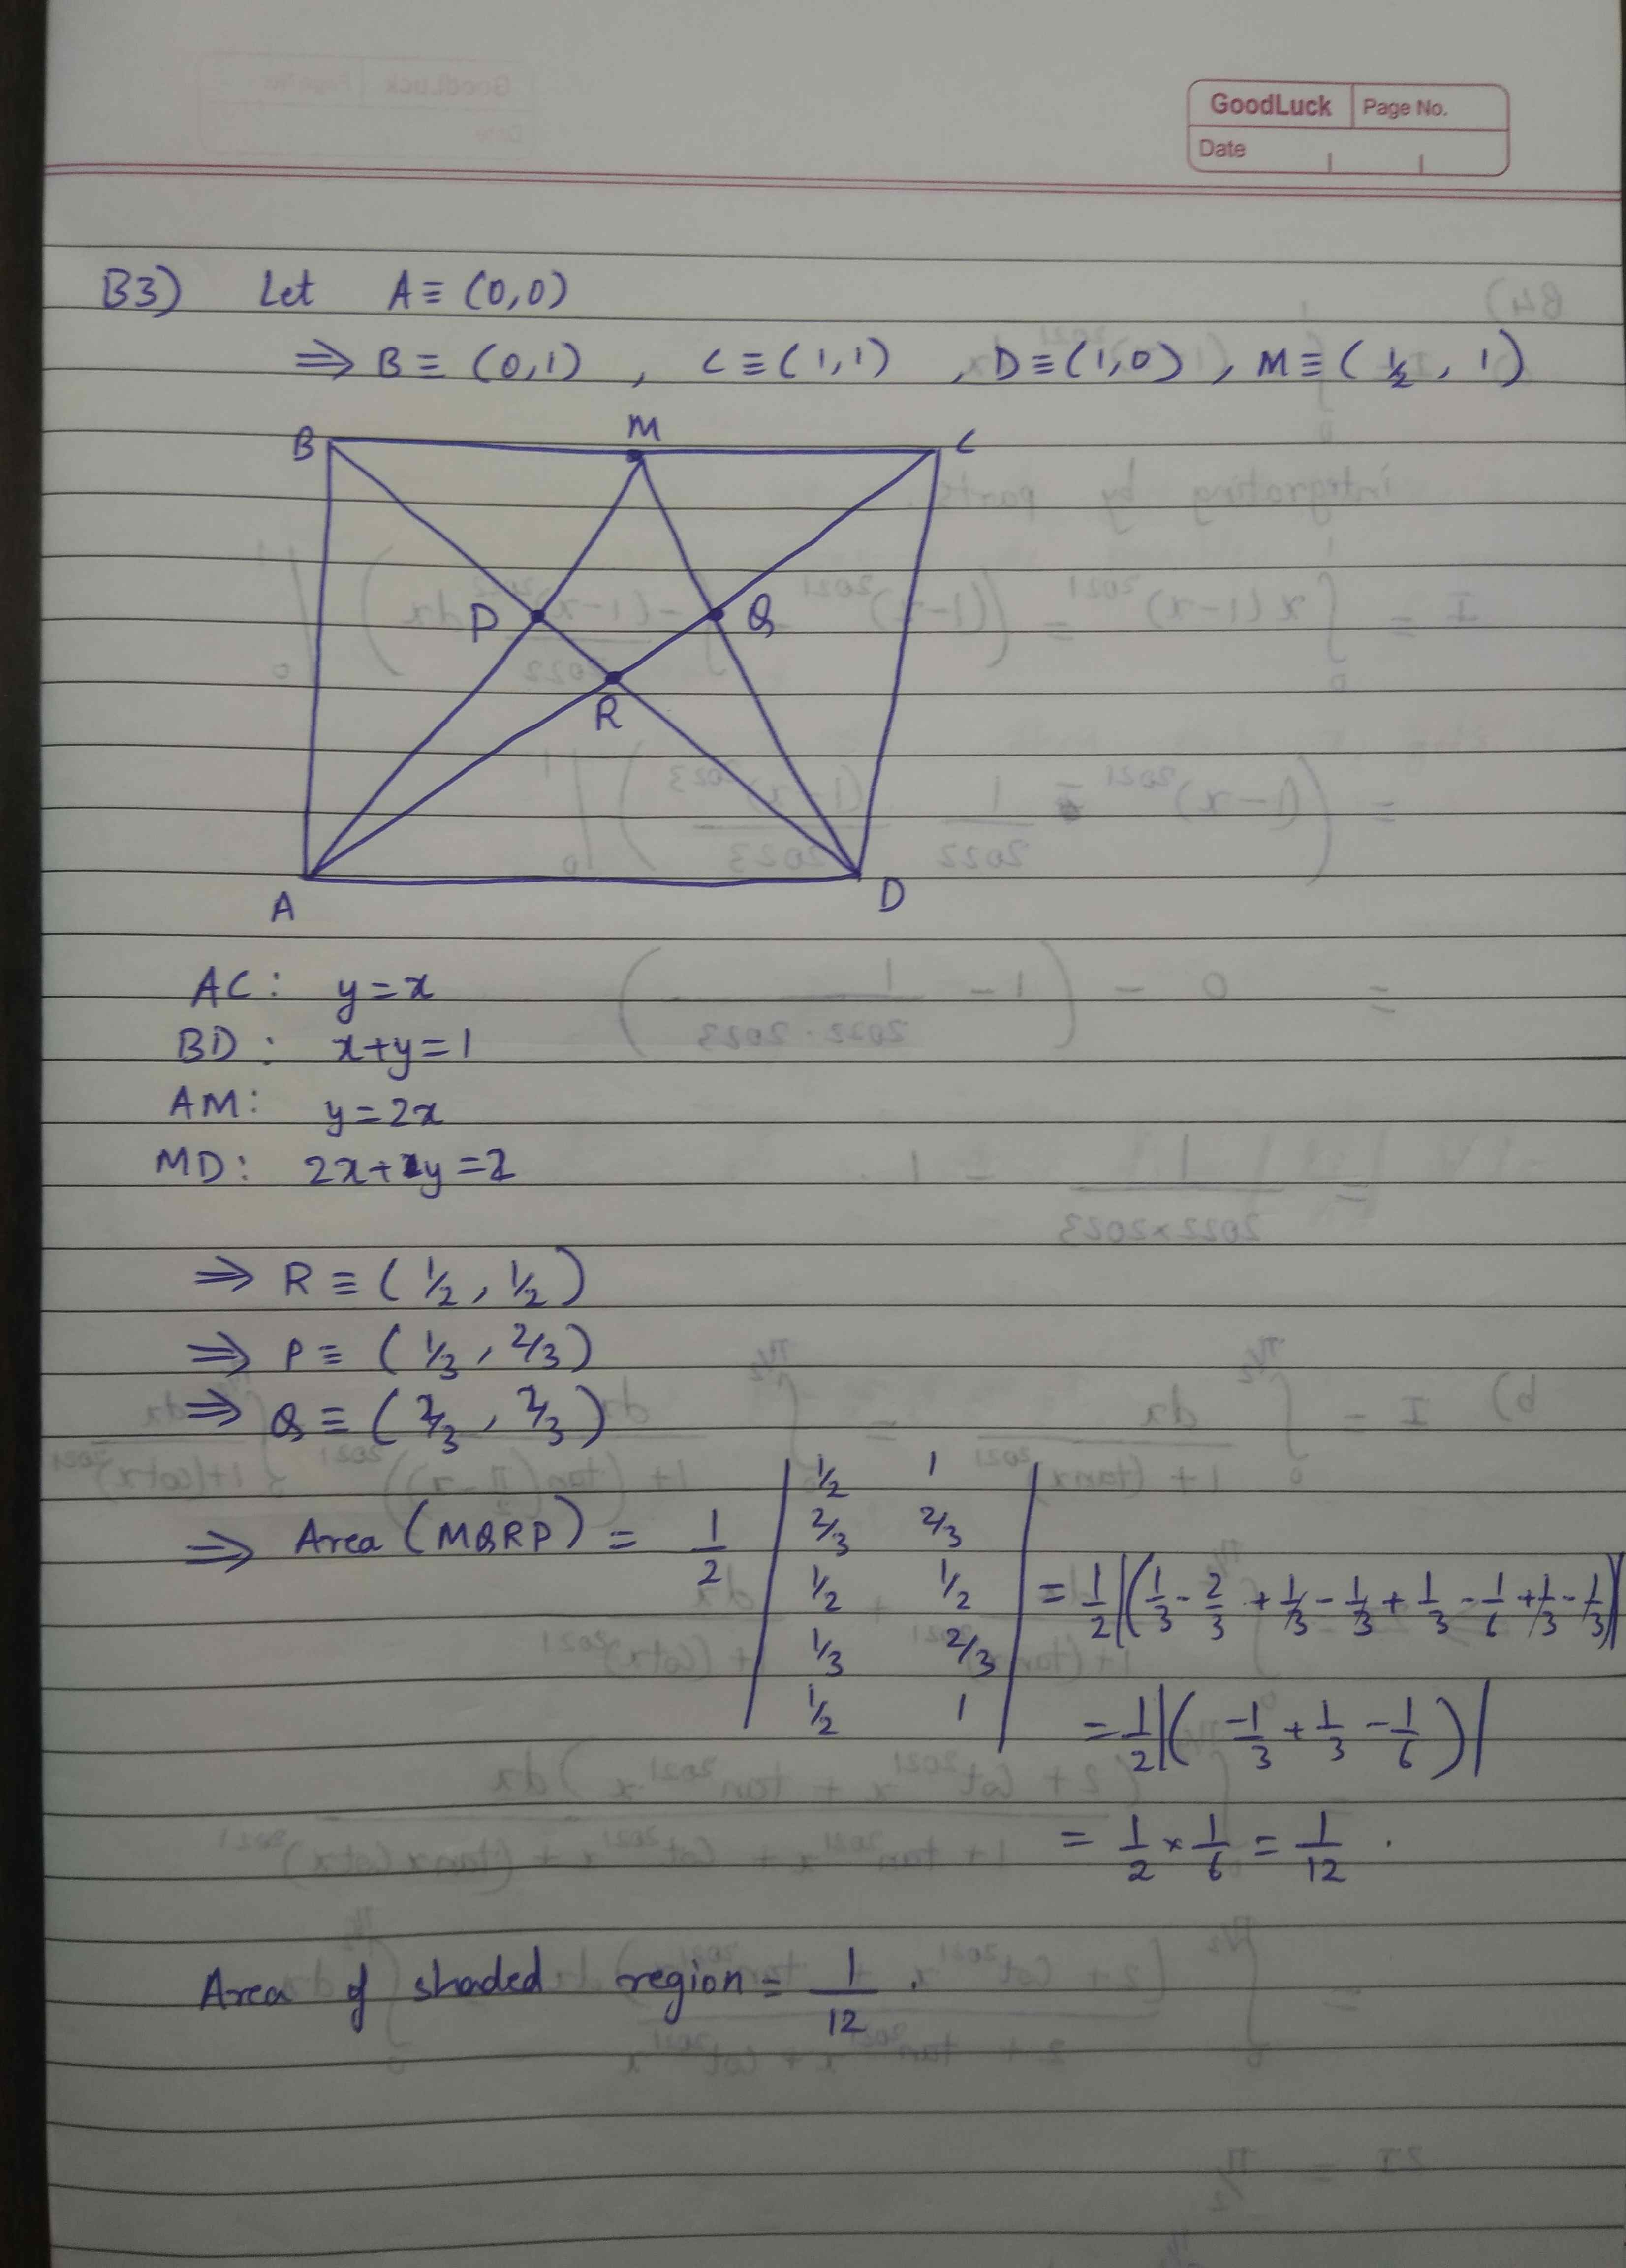 GoodLuck Page No.
Date
B3) Let A ≡ (0,0)
⇒ B ≡ (0,1) , C ≡ (1,1) , D ≡ (1,0) , M ≡ (1/2 , 1)
B M C
P Q
R
A D
AC: y = x
BD: x+y=1
AM: y = 2x
MD: 2x+y=2
⇒ R ≡ (1/2, 1/2)
⇒ P ≡ (1/3, 2/3)
⇒ Q ≡ (2/3, 2/3)
⇒ Area (MQRP) = 1/2 | 1/2 1 ; 2/3 2/3 ; 1/2 1/2 ; 1/3 2/3 ; 1/2 1 | = 1/2 |(1/3 - 2/3 + 1/3 - 1/3 + 1/3 - 1/6 + 1/3 - 1/3)|
= 1/2 |( -1/3 + 1/3 - 1/6 )|
= 1/2 × 1/6 = 1/12 .
Area of shaded region = 1/12 .